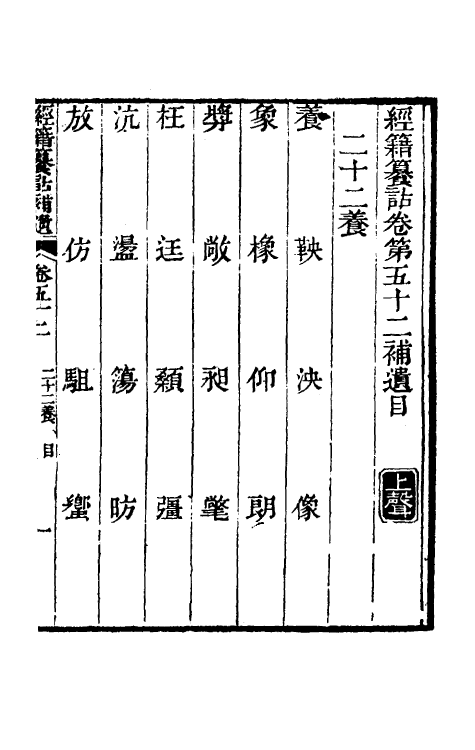 經籍籑詁卷第五十二補遺目
上聲
二十二養
養 鞅 泱 像
象 橡 仰 朗
獎 敞 昶 氅
枉 迋 顙 彊
沆 盪 簜 昉
放 仿 駔 蠁
經籍籑詁補遺 卷五十二 二十二養 目 一